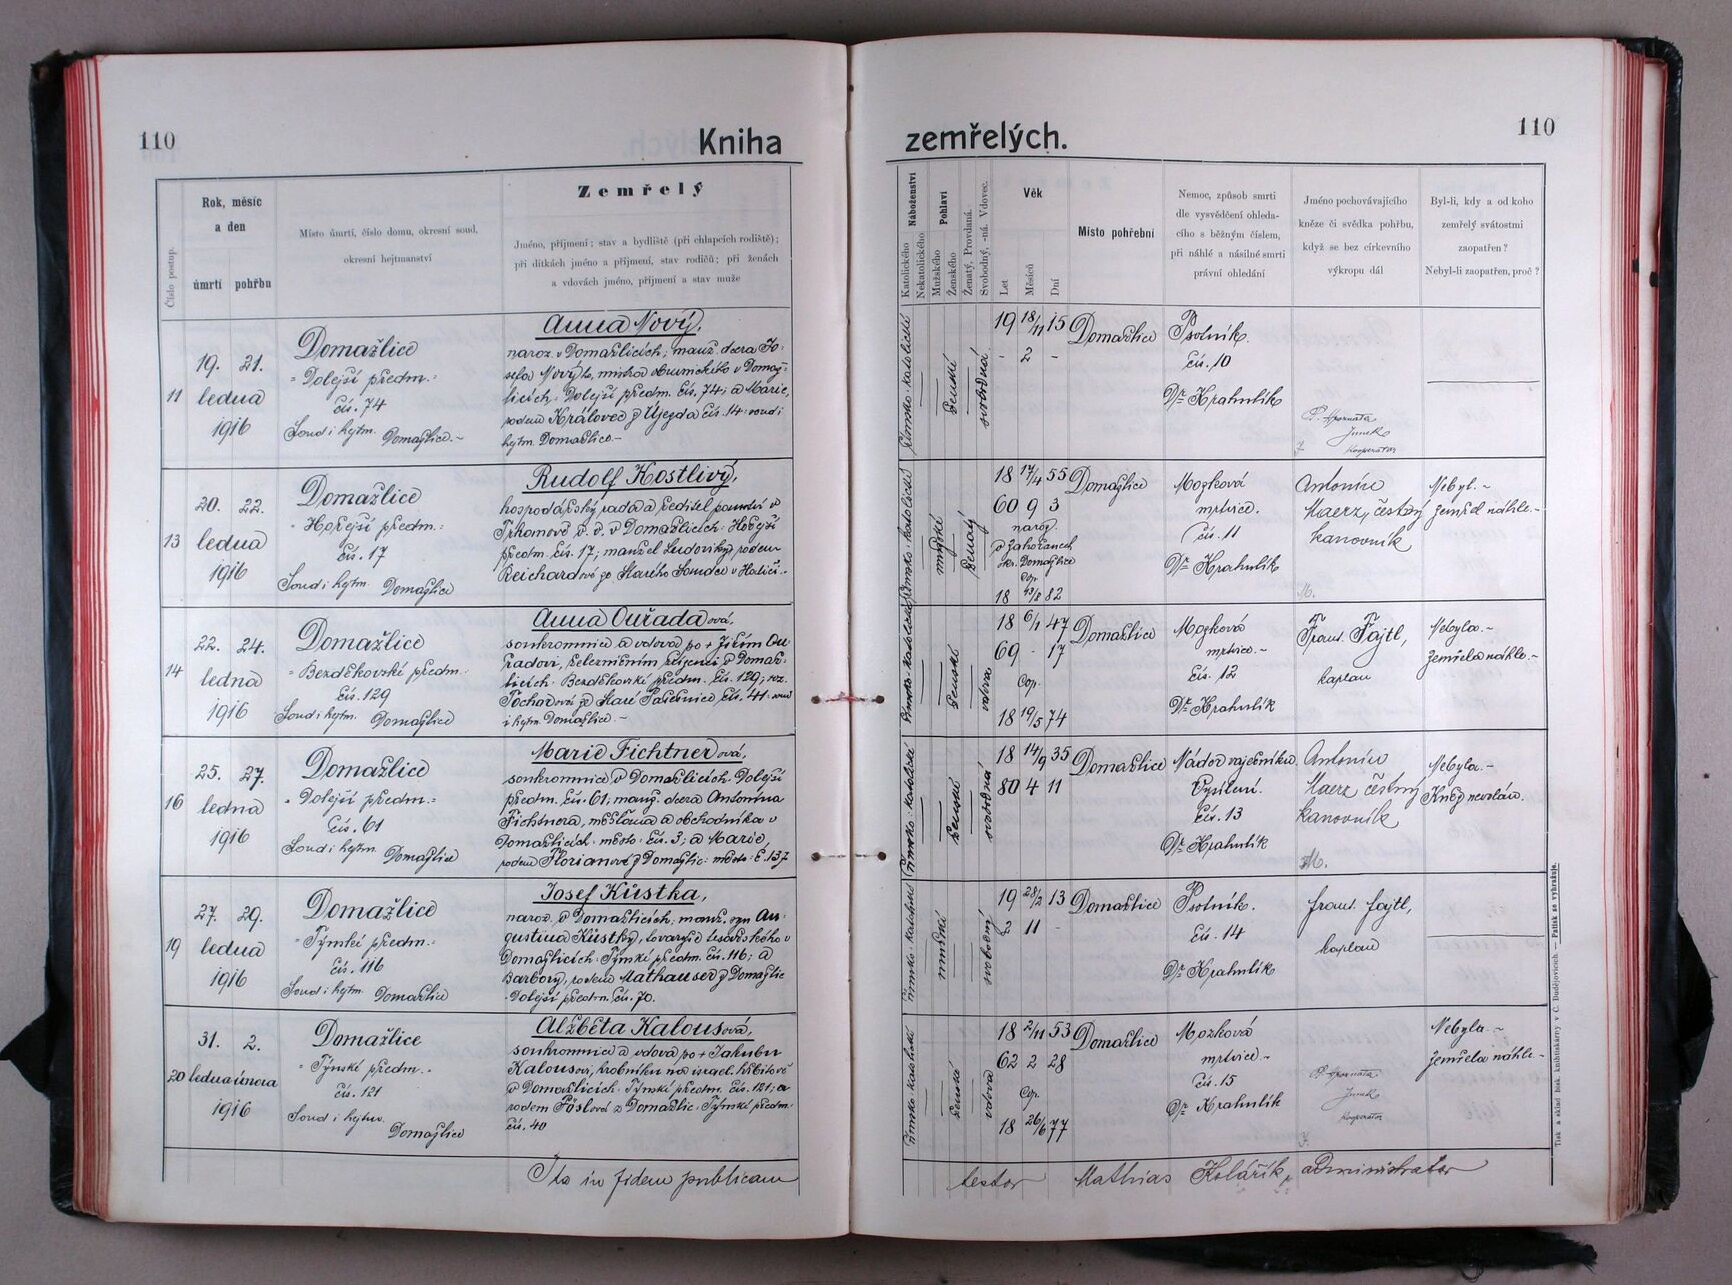 110
Kniha
zemřelých.
110
Číslo postup.
Rok, měsíc
a den
úmrtí pohřbu
Místo úmrtí, číslo domu, okresní soud,
okresní hejtmanství
Zemřelý
Jméno, příjmení; stav a bydliště (při chlapcích rodiště);
při dítkách jméno a příjmení, stav rodičů; při ženách
a vdovách jméno, příjmení a stav muže
Náboženství
Katolického
Nekatolického
Pohlaví
Mužského
Ženského
Ženatý, Provdaná.
Svobodný, -ná. Vdovec.
Věk
Let
Měsíců
Dní
Místo pohřební
Nemoc, způsob smrti
dle vysvědčení ohleda-
cího s běžným číslem,
při náhlé a násilné smrti
právní ohledání
Jméno pochovávajícího
kněze či svědka pohřbu,
když se bez církevního
výkropu dál
Byl-li, kdy a od koho
zemřelý svátostmi
zaopatřen?
Nebyl-li zaopatřen, proč?
11
19. 21.
ledna
1916
Domažlice
Dolejší předm.:
čís. 74
Soud i hejtm. Domažlice.-
Anna Nový,
naroz. v Domažlicích; manž. dcera Jo-
sefa Nový-ho, mistra obuvnického v Domaž-
licích: Dolejší předm. čís. 74; a Marie,
rodem Královec z Újezda čís. 14: soud i
hejtm. Domažlice.-
římsko-katolické
ženské
svobodná
19 18/11 15
- 2 -
Domažlice
Psotník.
čís. 10
Dr. Krahulík
Junek
kooperátor
13
20. 22.
ledna
1916
Domažlice
Hořejší předm.:
čís. 17
Soud i hejtm. Domažlice
Rudolf Kostlivý,
hospodářský rada a ředitel panství v
Trhanově v. v. v Domažlicích: Hořejší
předm. čís. 17; manžel Ludoviky, rodem
Reichardové ze Starého Sandce v Haliči.-
římsko-katolické
mužské
ženatý
18 17/4 55
60 9 3
naroz.
v Zahořanech
okr. Domažlice
cop.
18 13/8 82
Domažlice
Mozková
mrtvice.
čís. 11
Dr. Krahulík
Antonín
Maerz, čestný
kanovník
M.
Nebyl.-
Zemřel náhle.-
14
22. 24.
ledna
1916
Domažlice
Bezděkovské předm.:
čís. 129
Soud i hejtm. Domažlice
Anna Ouřadaová,
soukromnice a vdova po + Jiřím Ou-
řadovi, železničním zřízenci v Domaž-
licích: Bezděkovské předm. čís. 129; roz.
Pochardová ze Staré Pasečnice čís. 41: soud
i hejtm. Domažlice.-
římsko-katolické
ženské
vdova
18 6/1 47
69 - 17
cop.
18 19/5 74
Domažlice
Mozková
mrtvice.-
čís. 12
Dr. Krahulík
Frant. Fajtl,
kaplan
Nebyla.-
Zemřela náhle.-
16
25. 27.
ledna
1916
Domažlice
Dolejší předm.:
čís. 61
Soud i hejtm. Domažlice
Marie Fichtnerová,
soukromnice v Domažlicích: Dolejší
předm. čís. 61; manž. dcera Antonína
Fichtnera, měšťana a obchodníka v
Domažlicích: město: čís. 3; a Marie,
rodem Florianové z Domažlic: město: č. 137
římsko-katolické
ženské
svobodná
18 14/9 35
80 4 11
Domažlice
Nádor vaječníku.
Vysílení.
čís. 13
Dr. Krahulík
Antonín
Maerz čestný
kanovník
M.
Nebyla.-
Kněz nevolán.
19
27. 29.
ledna
1916
Domažlice
Týnské předm.:
čís. 116
Soud i hejtm. Domažlice
Josef Kůstka,
naroz. v Domažlicích, manž. syn Au-
gustina Kůstky, tovaryše tesařského v
Domažlicích: Týnské předm. čís. 116; a
Barbory, rodem Mathauser z Domažlic
Dolejší předm. čís. 70.
římsko-katolické
mužské
svobodný
19 28/2 13
2 11 -
Domažlice
Psotník.
čís. 14
Dr. Krahulík
Frant. Fajtl,
kaplan
20
31. 2.
ledna února
1916
Domažlice
Týnské předm.
čís. 121
Soud i hejtm.
Domažlice
Alžběta Kalousová,
soukromnice a vdova po + Jakubu
Kalousovi, hrobníku na israel. hřbitově
v Domažlicích: Týnské předm. čís. 121; a
rodem Föslová z Domažlic: Týnské předm.
čís. 40
římsko-katolické
ženské
vdova
18 2/11 53
62 2 28
cop.
18 26/6 77
Domažlice
Mozková
mrtvice.-
čís. 15
Dr. Krahulík
Junek
kooperátor
Nebyla.-
Zemřela náhle.-
Ita in fidem publicam
testor Mathias Kolářík, administrator
Tisk a sklad bisk. knihtiskárny v Č. Budějovicích. — Patisk se vyhražuje.